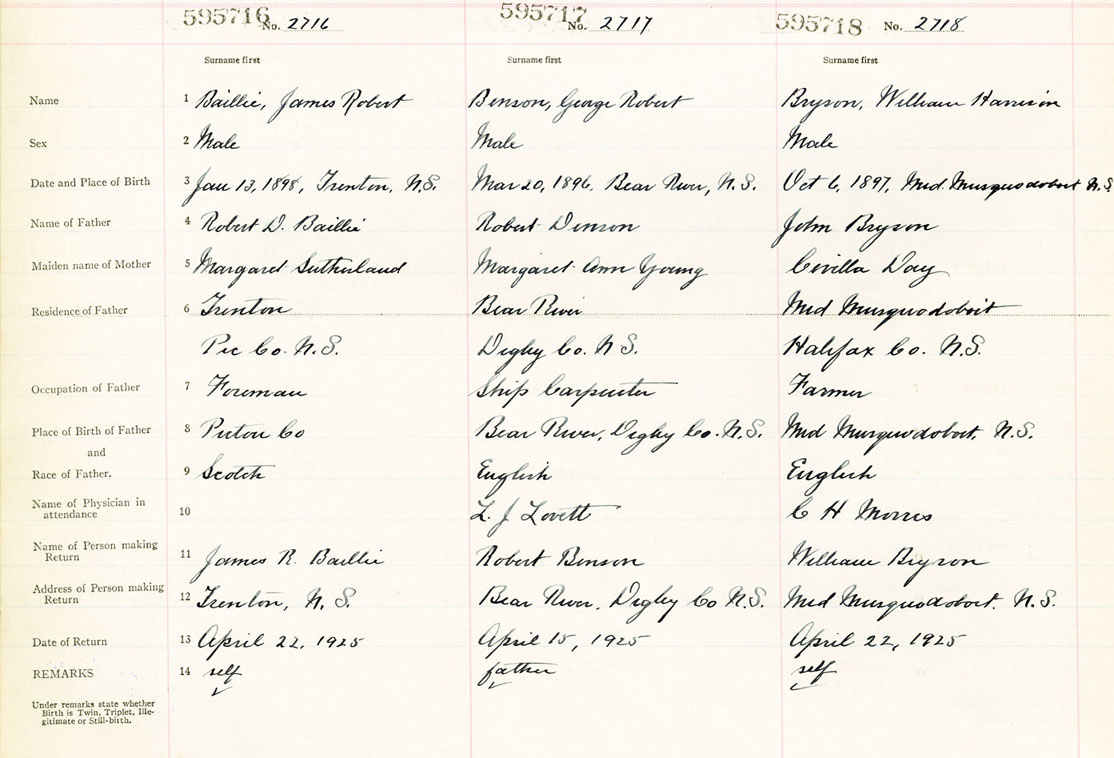 595716 No. 2716 595717 No. 2717 595718 No. 2718
Surname first Surname first Surname first
Name 1 Baillie, James Robert Benson, George Robert Bryson, William Harrison
Sex 2 Male Male Male
Date and Place of Birth 3 Jan 13, 1898, Trenton, N.S. Mar 20, 1896, Bear River, N.S. Oct 6, 1897, Mid. Musquodoboit N.S.
Name of Father 4 Robert D. Baillie Robert Benson John Bryson
Maiden name of Mother 5 Margaret Sutherland Margaret Ann Young Covilla Day
Residence of Father 6 Trenton Bear River Mid Musquodoboit
Pic Co. N.S. Digby Co. N.S. Halifax Co. N.S.
Occupation of Father 7 Foreman Ship Carpenter Farmer
Place of Birth of Father 8 Pictou Co Bear River, Digby Co. N.S. Mid Musquodoboit, N.S.
and
Race of Father. 9 Scotch English English
Name of Physician in
attendance 10 L. J. Lovett C H Morris
Name of Person making
Return 11 James R. Baillie Robert Benson William Bryson
Address of Person making
Return 12 Trenton, N.S. Bear River, Digby Co N.S. Mid Musquodoboit, N.S.
Date of Return 13 April 22, 1925 April 15, 1925 April 22, 1925
REMARKS 14 self father self
Under remarks state whether
Birth is Twin, Triplet, Ille-
gitimate or Still-birth.